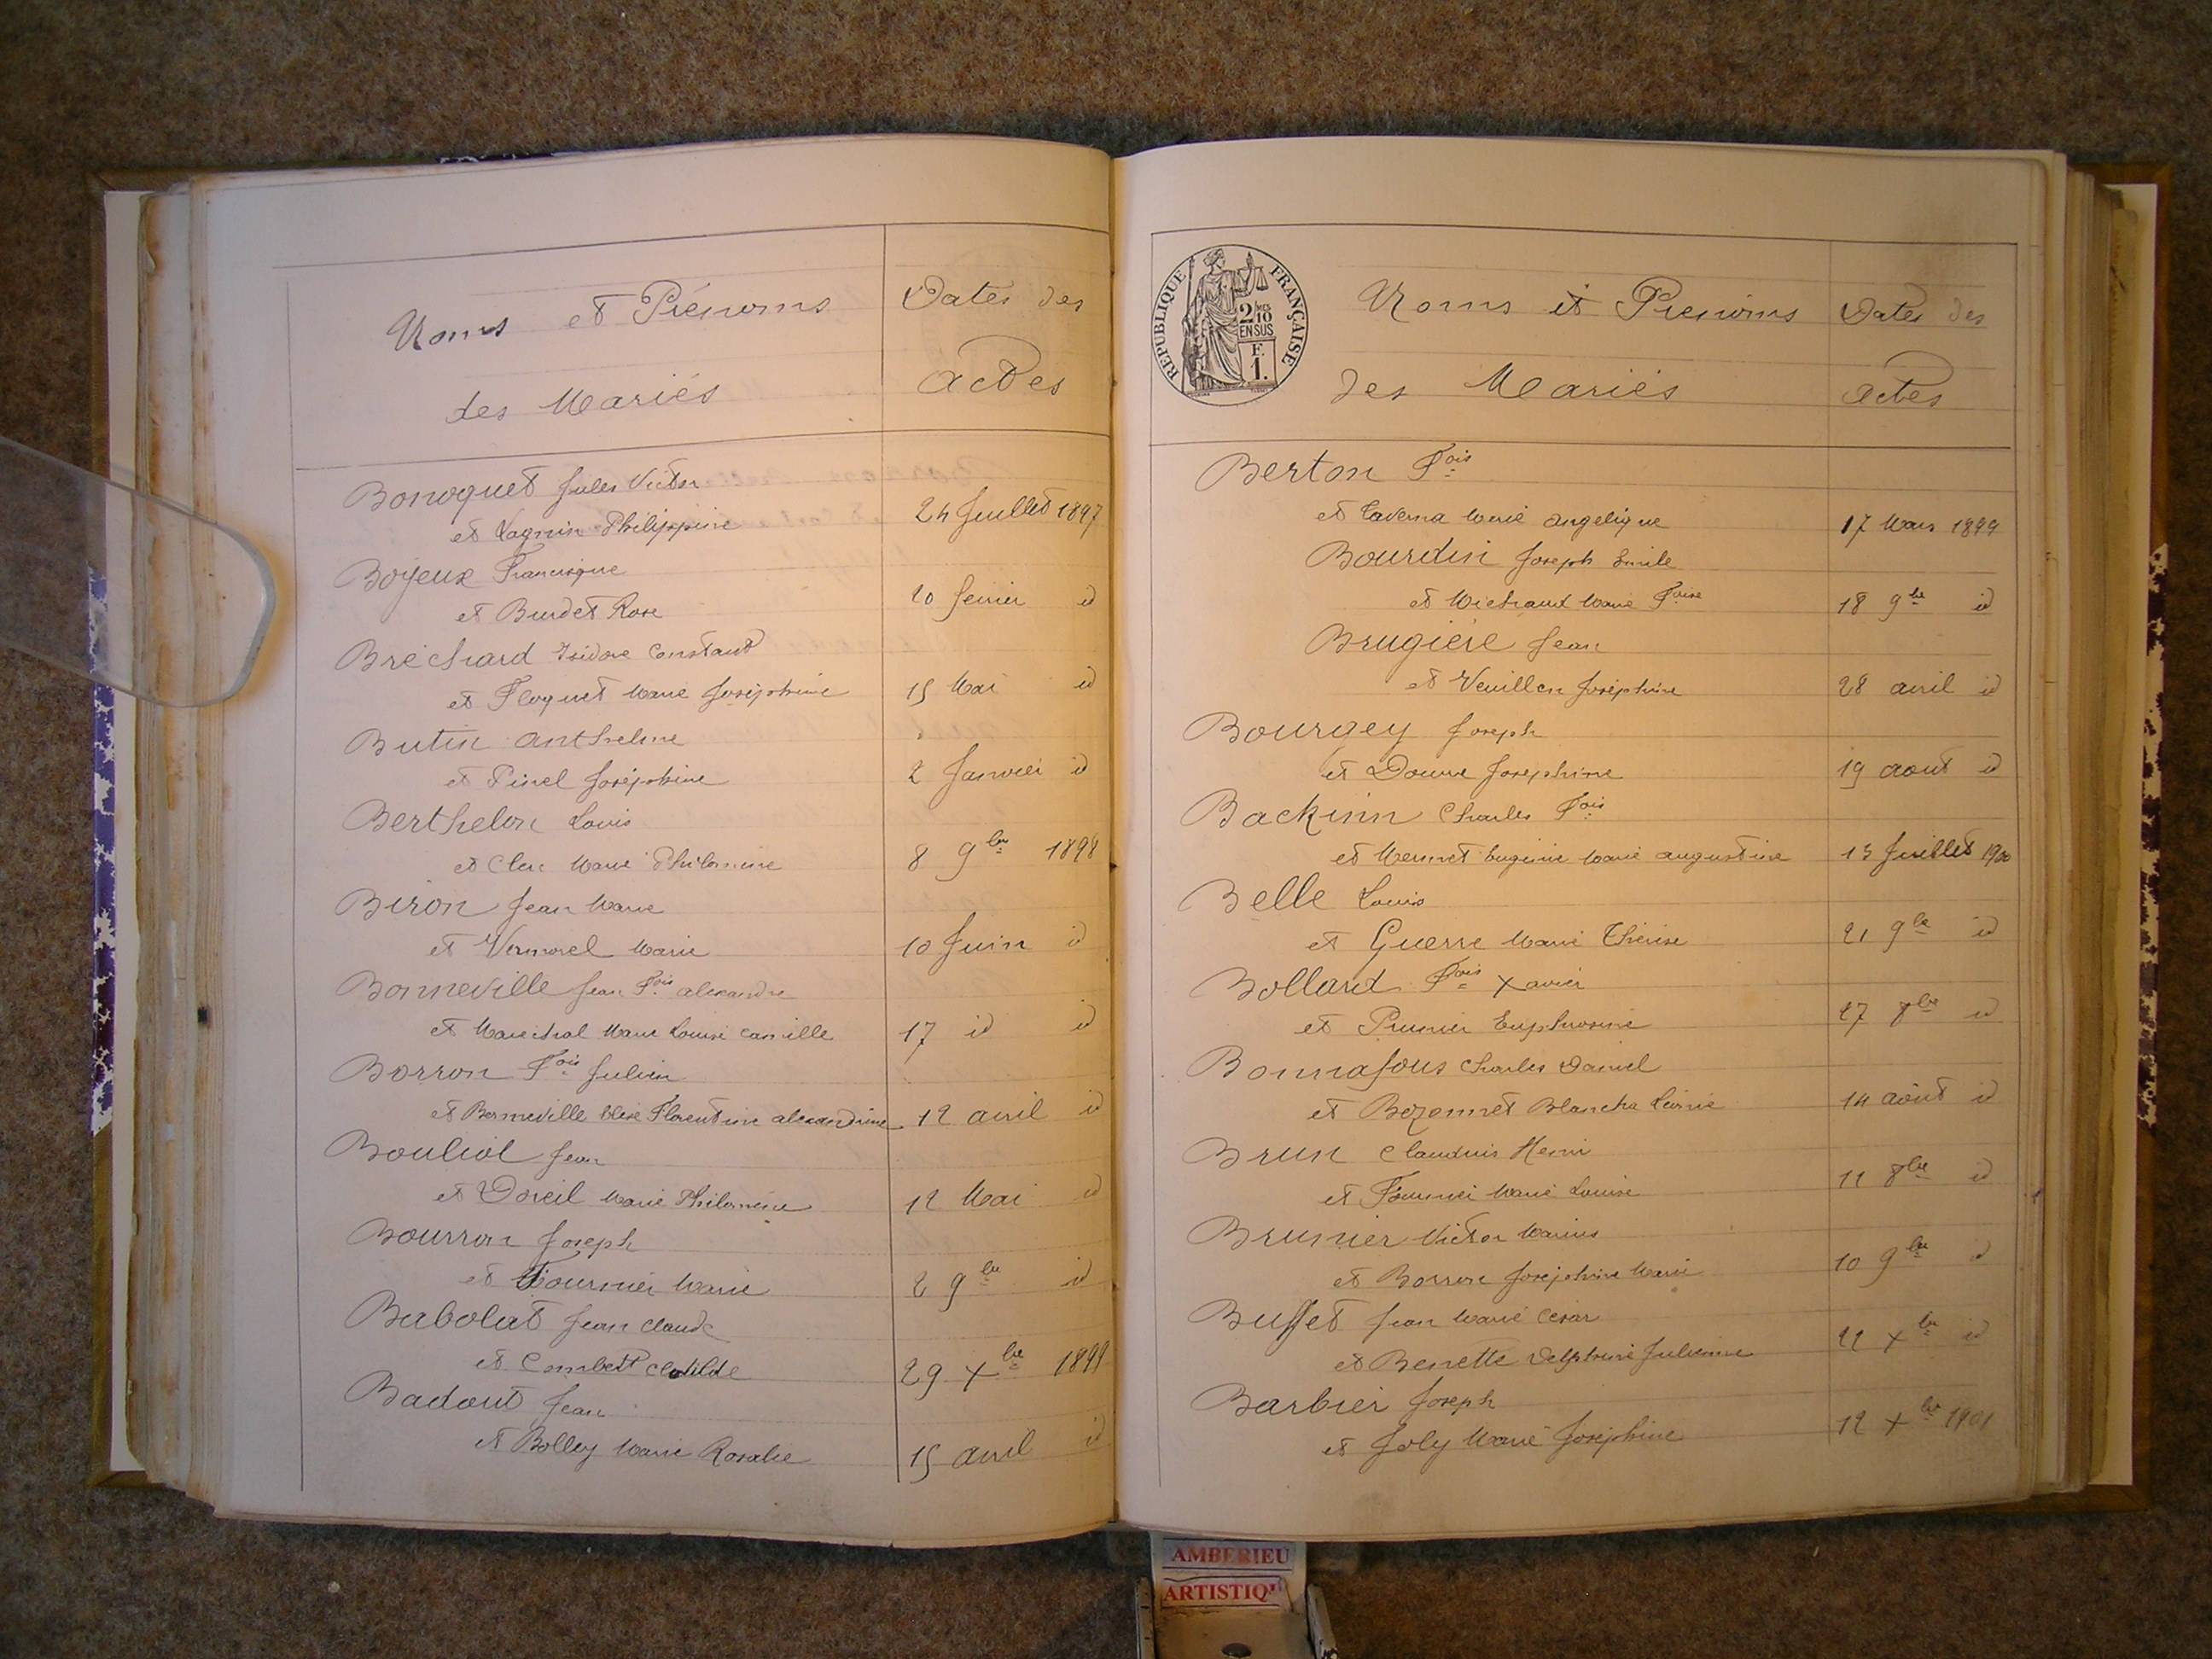 Noms et Prénoms
des Mariés
Dates des
actes
Bonoquet Jules Victor
et Lagnin Philippine 24 Juillet 1897
Boyeux Francisque
et Burdet Rose 20 fevrier id
Bréchard Isidore Constant
et Floquet Marie Joséphine 15 Mai id
Butin Anthelme
et Pinel Joséphine 2 Janvier id
Berthelon Louis
et Clerc Marie Philomène 8 9bre 1898
Biron Jean Marie
et Vermorel Marie 10 Juin id
Bonneville Jean Fois alexandre
et Maréchal Marie Louise Camille 17 id id
Borron Fois Julien
et Bonneville Elise Florentine alexandrine 12 avril id
Bouliol Jean
et Doreil Marie Philomène 12 Mai id
Bourron Joseph
et Fournier Marie 2 9bre id
Babolat Jean Claude
et Combet Clotilde 29 xbre 1899
Badout Jean
et Bolley Marie Rosalie 15 avril id
REPUBLIQUE FRANÇAISE
2/10 EN SUS
F. 1.
Noms et Prénoms
des Mariés
Dates des
actes
Berton Fois
et Caverna Marie angelique 17 Mars 1899
Bourdin Joseph Emile
et Michaud Marie Foise 18 9bre id
Brugière Jean
et Veuillen Joséphine 28 avril id
Bourgey Joseph
et Josephine 19 aout id
Backinn Charles Fois
et Mermet Eugénie Marie augustine 13 Juillet 1900
Belle Louis
et Guerre Marie Thérèse 21 9bre id
Bolland Fois Xavier
et Prunier Euphrosine 27 8bre id
Bonnafous Charles Daniel
et Bozonnet Blancha Léonie 14 août id
Brun Claudius Henri
et Fournier Marie Louise 11 8bre id
Brunier Victor Marius
et Borron Joséphine Marie 10 9bre id
Buffet Jean Marie Cesar
et Benette Delphine Julienne 22 xbre id
Barbier Joseph
et Joly Marie Joséphine 12 xbre 1901
AMBERIEU
ARTISTIQ